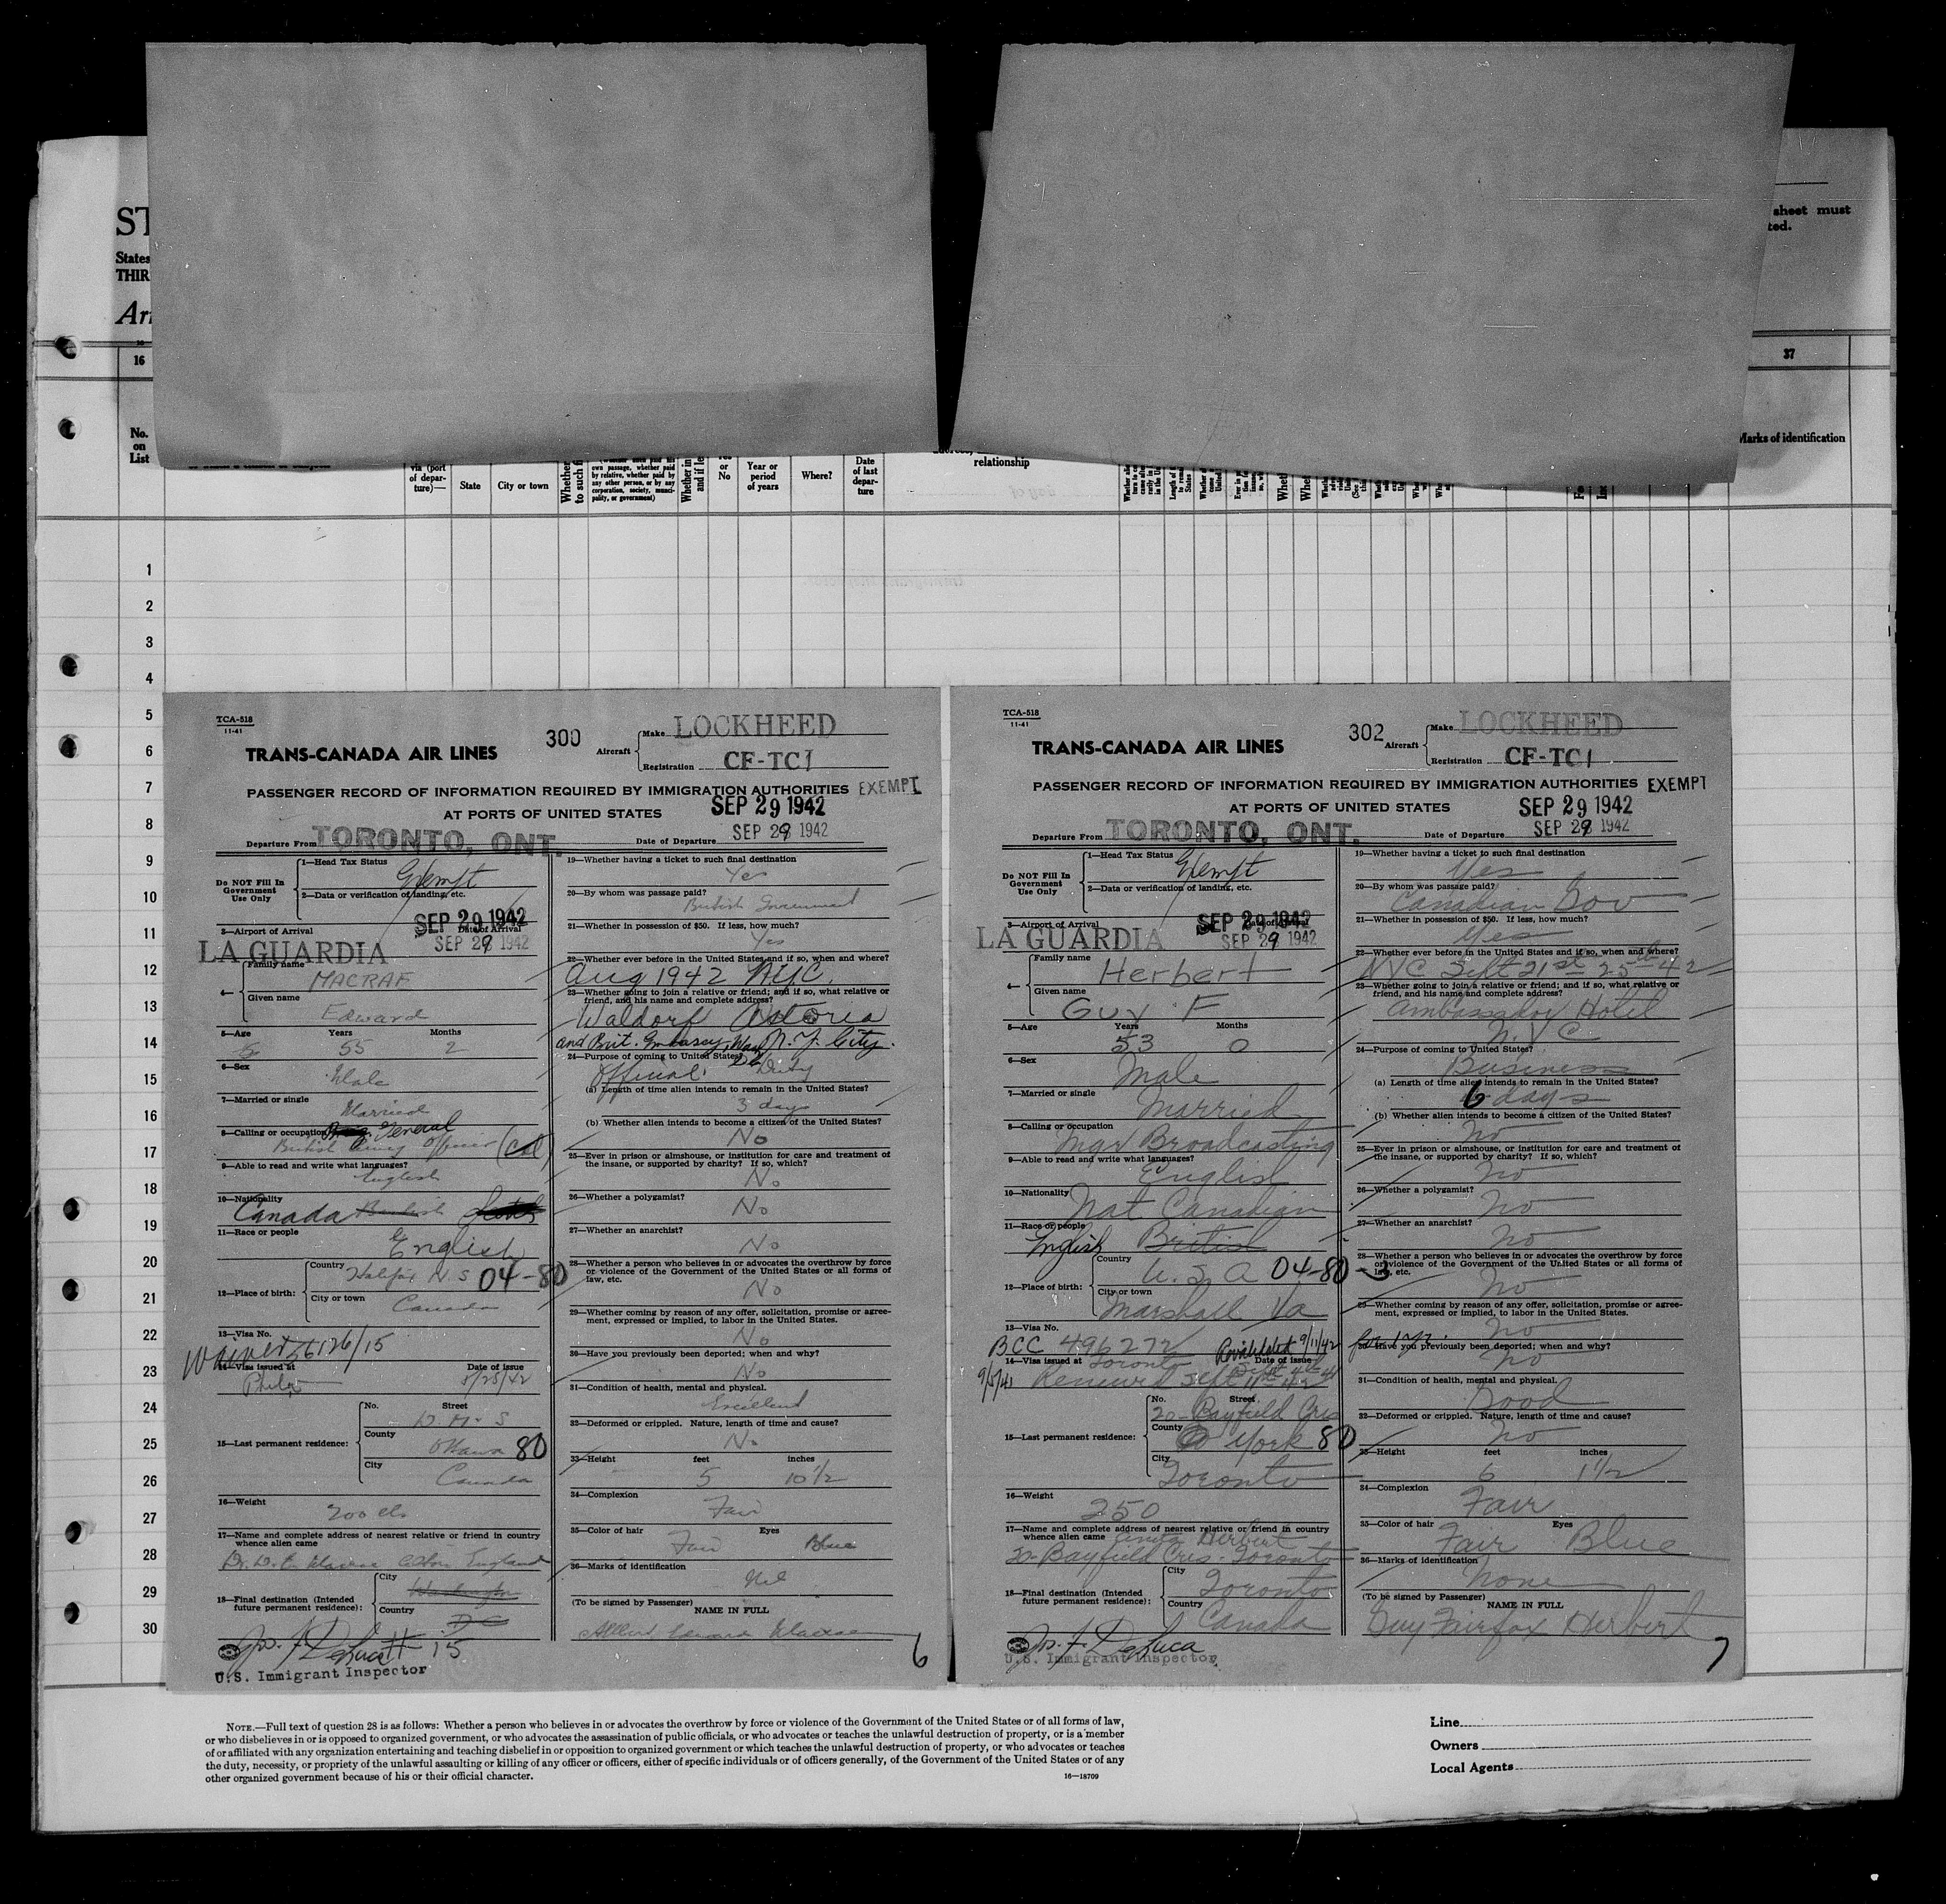 ST
States
THIR
Arr
16
No.
on
List
via (port
of depar-
ture)—
State
City or town
Whether
to such fi
own passage, whether paid
by relative, whether paid by
any other person, or by any
corporation, society, munici-
pality, or government)
Whether in
and if le
or
No
Year or
period
of years
Where?
Date
of last
depar-
ture
relationship
sheet must
ted.
37
Marks of identification
1
2
3
4
5
6
7
8
9
10
11
12
13
14
15
16
17
18
19
20
21
22
23
24
25
26
27
28
29
30
TCA-518
11-41
TRANS-CANADA AIR LINES
300
Aircraft
Make LOCKHEED
Registration CF-TCI
PASSENGER RECORD OF INFORMATION REQUIRED BY IMMIGRATION AUTHORITIES EXEMPT
AT PORTS OF UNITED STATES
SEP 29 1942
Departure From TORONTO, ONT.
Date of Departure SEP 29 1942
Do NOT Fill In
Government
Use Only
1—Head Tax Status
Exempt
2—Data or verification of landing, etc.
SEP 29 1942
3—Airport of Arrival
Date of Arrival
LA GUARDIA
SEP 29 1942
4—
Family name
MACRAE
Given name
Edward
5—Age Years Months
55 2
6—Sex
Male
7—Married or single
Married
8—Calling or occupation General
British Army Officer (Col)
9—Able to read and write what languages?
English
10—Nationality
Canada British
11—Race or people
English
12—Place of birth:
Country
Halifax N.S 04-80
City or town
Canada
13—Visa No.
Waiver 56126/15
14—Visa issued at Date of issue
Phila 8/25/42
15—Last permanent residence:
No. Street
D.M.S
County
Ottawa 80
City
Canada
16—Weight
200 lbs
17—Name and complete address of nearest relative or friend in country
whence alien came
England
18—Final destination (Intended
future permanent residence):
City
Washington
Country
DC
Jos. F. DeLuca # 15
U.S. Immigrant Inspector
19—Whether having a ticket to such final destination
Yes
20—By whom was passage paid?
British Government
21—Whether in possession of $50. If less, how much?
Yes
22—Whether ever before in the United States and if so, when and where?
Aug 1942 NYC.
23—Whether going to join a relative or friend; and if so, what relative or
friend, and his name and complete address?
Waldorf Astoria
and Brit. Embassy, Wash DC N.Y. City.
24—Purpose of coming to United States?
Official Duty
(a) Length of time alien intends to remain in the United States?
3 days
(b) Whether alien intends to become a citizen of the United States?
No
25—Ever in prison or almshouse, or institution for care and treatment of
the insane, or supported by charity? If so, which?
No
26—Whether a polygamist?
No
27—Whether an anarchist?
No
28—Whether a person who believes in or advocates the overthrow by force
or violence of the Government of the United States or all forms of
law, etc.
No
29—Whether coming by reason of any offer, solicitation, promise or agree-
ment, expressed or implied, to labor in the United States.
No
30—Have you previously been deported; when and why?
No
31—Condition of health, mental and physical.
Excellent
32—Deformed or crippled. Nature, length of time and cause?
No
33—Height feet inches
5 10 1/2
34—Complexion
Fair
35—Color of hair Eyes
Fair Blue
36—Marks of identification
Nil
(To be signed by Passenger)
NAME IN FULL
Albert Edward Macrae
6
TCA-518
11-41
TRANS-CANADA AIR LINES
302
Aircraft
Make LOCKHEED
Registration CF-TCI
PASSENGER RECORD OF INFORMATION REQUIRED BY IMMIGRATION AUTHORITIES EXEMPT
AT PORTS OF UNITED STATES
SEP 29 1942
Departure From TORONTO, ONT.
Date of Departure SEP 29 1942
Do NOT Fill In
Government
Use Only
1—Head Tax Status
Exempt
2—Data or verification of landing, etc.
3—Airport of Arrival
SEP 29 1942
Date of Arrival
LA GUARDIA
SEP 29 1942
4—
Family name
Herbert
Given name
Guy F
5—Age Years Months
53 0
6—Sex
Male
7—Married or single
Married
8—Calling or occupation
Mgr Broadcasting
9—Able to read and write what languages?
English
10—Nationality
Nat Canadian
11—Race or people
English British
12—Place of birth:
Country
U.S.A 04-80-3
City or town
Marshall Va
13—Visa No.
BCC 496272 Revalidated 9/11/42 for 1 yr.
14—Visa issued at Toronto Date of issue
9/5/41 Renewed Sept 11th 42
15—Last permanent residence:
No. Street
20 Bayfield Cres
County
York 80
City
Toronto
16—Weight
250
17—Name and complete address of nearest relative or friend in country
whence alien came Herbert
20 Bayfield Cres. Toronto
18—Final destination (Intended
future permanent residence):
City
Toronto
Country
Canada
Jos. F. DeLuca
U.S. Immigrant Inspector
19—Whether having a ticket to such final destination
Yes
20—By whom was passage paid?
Canadian Gov
21—Whether in possession of $50. If less, how much?
Yes
22—Whether ever before in the United States and if so, when and where?
NYC Sept 21st 25th 42
23—Whether going to join a relative or friend; and if so, what relative or
friend, and his name and complete address?
Ambassador Hotel
N.Y.C
24—Purpose of coming to United States?
Business
(a) Length of time alien intends to remain in the United States?
6 days
(b) Whether alien intends to become a citizen of the United States?
no
25—Ever in prison or almshouse, or institution for care and treatment of
the insane, or supported by charity? If so, which?
no
26—Whether a polygamist?
no
27—Whether an anarchist?
no
28—Whether a person who believes in or advocates the overthrow by force
or violence of the Government of the United States or all forms of
law, etc.
no
29—Whether coming by reason of any offer, solicitation, promise or agree-
ment, expressed or implied, to labor in the United States.
no
30—Have you previously been deported; when and why?
no
31—Condition of health, mental and physical.
Good
32—Deformed or crippled. Nature, length of time and cause?
no
33—Height feet inches
6 1 1/2
34—Complexion
Fair
35—Color of hair Eyes
Fair Blue
36—Marks of identification
none
(To be signed by Passenger)
NAME IN FULL
Guy Fairfax Herbert
7
NOTE.—Full text of question 28 is as follows: Whether a person who believes in or advocates the overthrow by force or violence of the Government of the United States or of all forms of law,
or who disbelieves in or is opposed to organized government, or who advocates the assassination of public officials, or who advocates or teaches the unlawful destruction of property, or is a member
of or affiliated with any organization entertaining and teaching disbelief in or opposition to organized government or which teaches the unlawful destruction of property, or who advocates or teaches
the duty, necessity, or propriety of the unlawful assaulting or killing of any officer or officers, either of specific individuals or of officers generally, of the Government of the United States or of any
other organized government because of his or their official character.
16—18709
Line
Owners
Local Agents